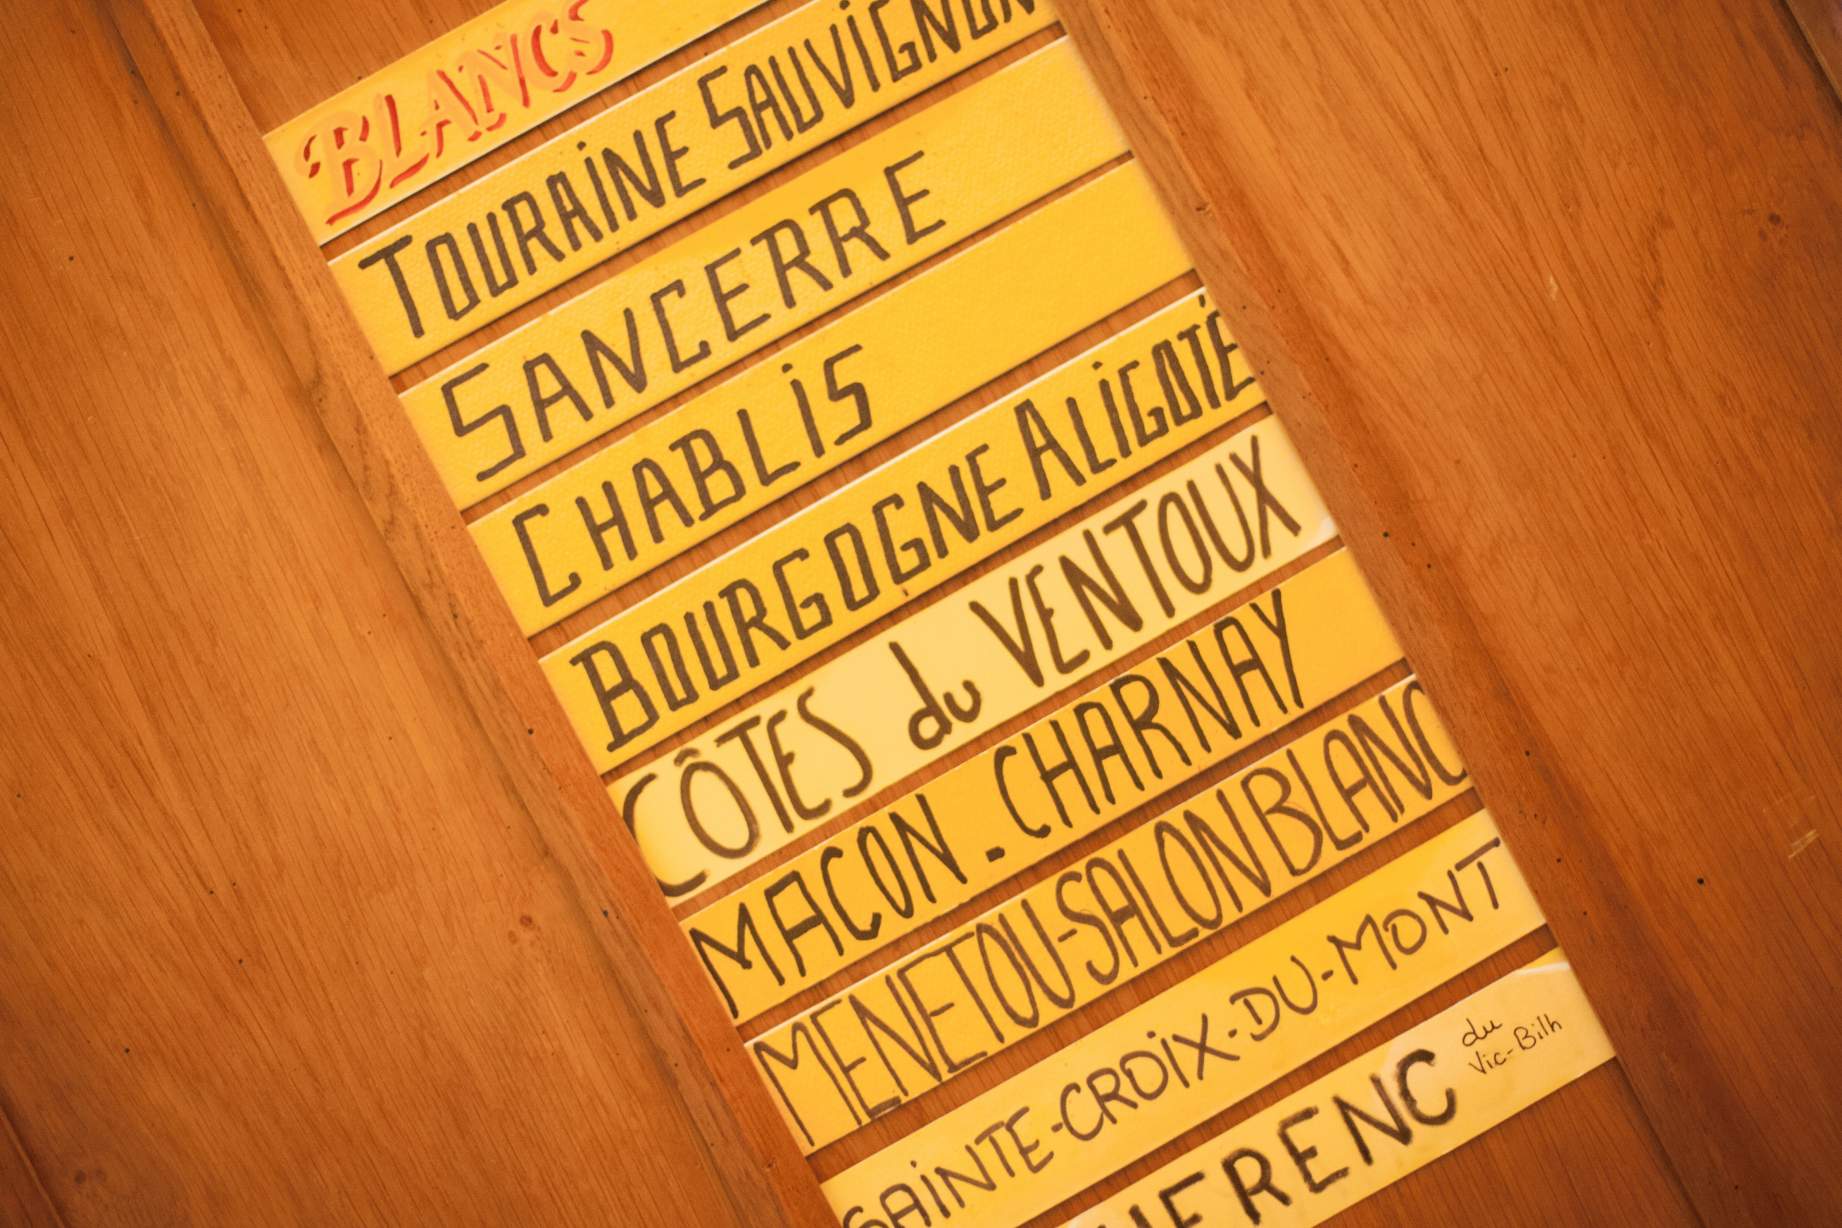 BLANCS
TOURAINE SAUVIGNON
SANCERRE
CHABLIS
BOURGOGNE ALIGOTÉ
CÔTES du VENTOUX
MACON - CHARNAY
MENETOU-SALON BLANC
SAINTE-CROIX-DU-MONT
du
Vic-Bilh